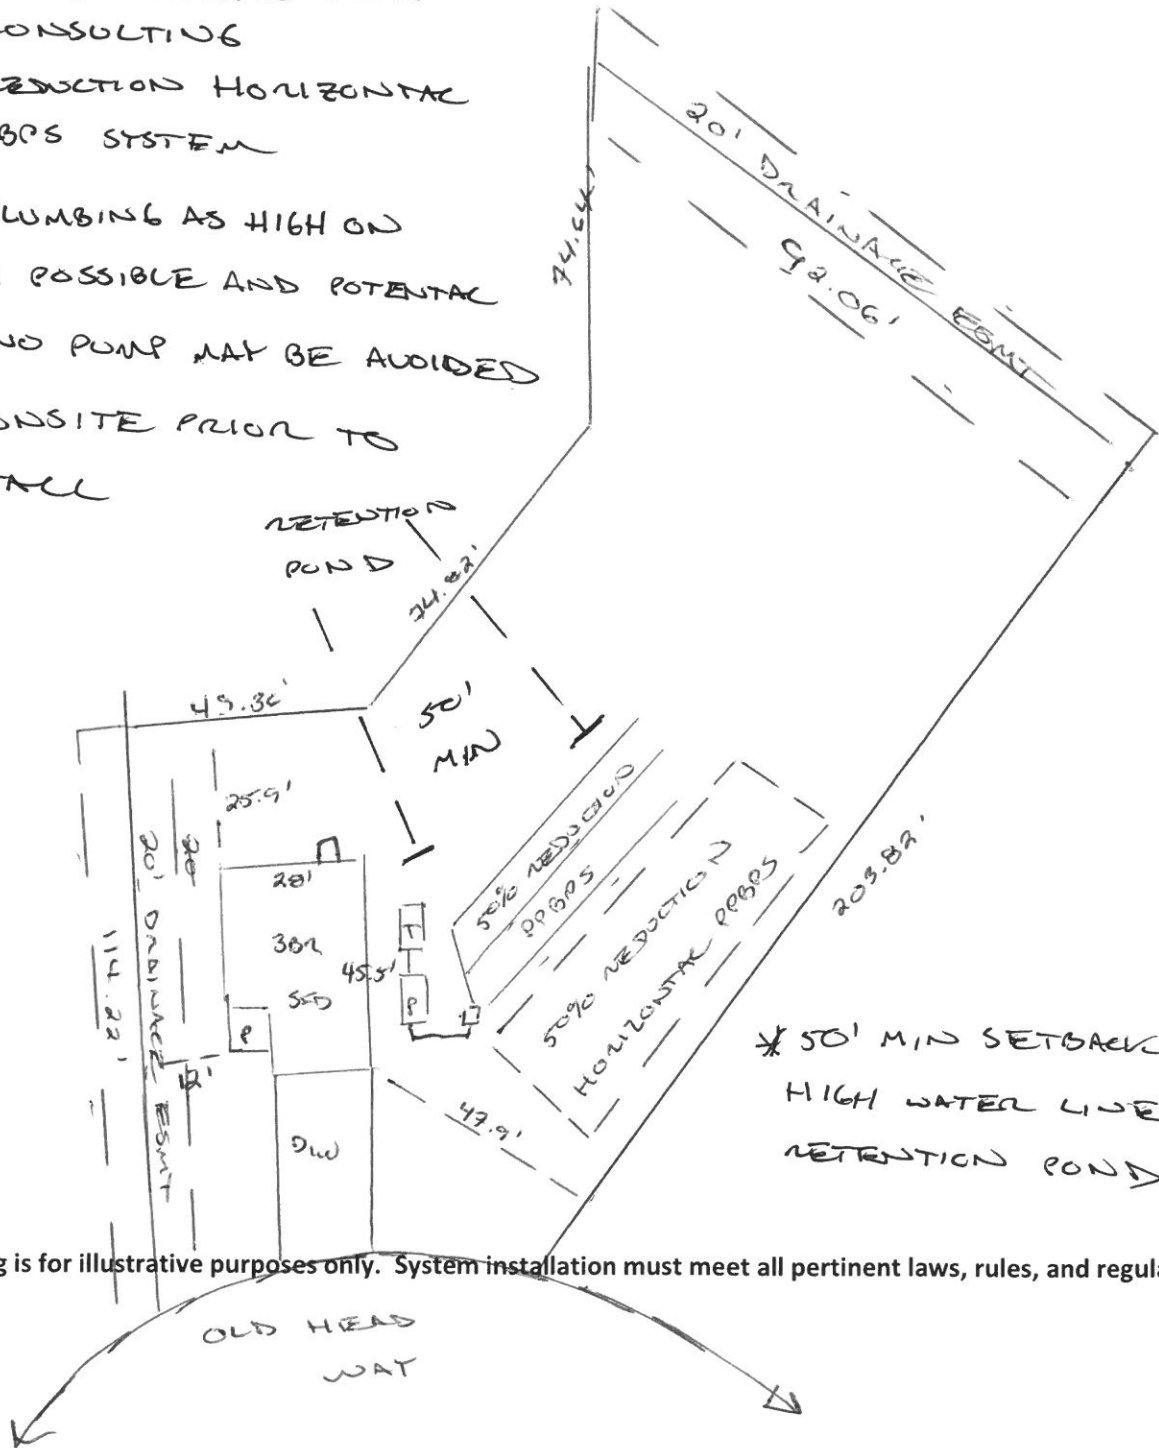 ONSULTING
EDUCTION HORIZONTAL
BPS SYSTEM
LUMBING AS HIGH ON
POSSIBLE AND POTENTAL
NO PUMP MAY BE AVOIDED
ONSITE PRIOR TO
TALL
20' DRAINAGE ESMT
92.06'
74.64'
RETENTION
POND
74.82'
49.36'
50'
MIN
25.9'
20
20' DRAINAGE ESMT
114.22'
28'
3BR
45.5'
SFD
P
12'
DW
T
P
50% REDUCTION
PPBPS
50% REDUCTION
HORIZONTAL PPBPS
203.82'
47.9'
* 50' MIN SETBACK
HIGH WATER LINE
RETENTION POND
g is for illustrative purposes only. System installation must meet all pertinent laws, rules, and regula
OLD HEAD
WAY